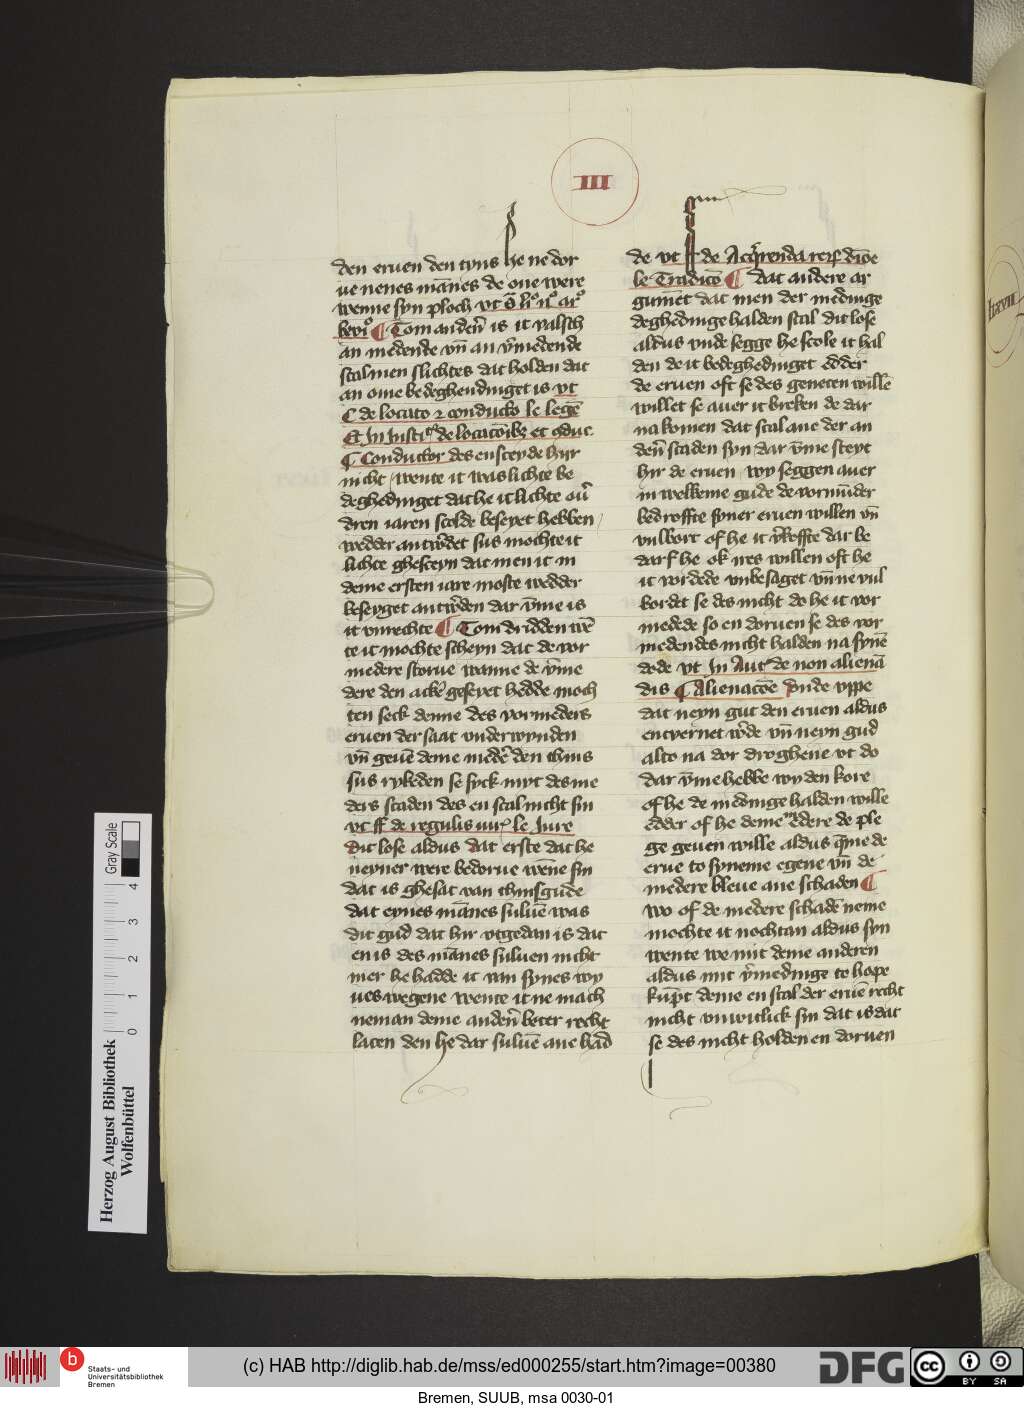 III
den eruen den tyns he ne dor
ue nenes mānes de one were
wenne syn ploch vt
Tom andern̄ is it valsch
an medende vn̄ an v̄medende
scal men slichtes dat holden dat
an ome bedeghendinget is vt
C de locato ⁊ conducto le legē
Et In Insti de locacōibꝫ et ꝯduc
¶ Conductor des en scey de hyr
nicht wente it was lichte be
deghedinget dat he it lichte
dren iaren scolde beseyet hebben
wedder antw̄det sus mochte it
lichte ghesceyn dat men it in
deme ersten iare moste wedder
beseyget antw̄den dar v̄me is
it vnrechte ¶ Tom dridden wē
te it mochte scheyn dat de vor
medere storue wanne de v̄me
dere den acker geseyet hedde moch
ten seck denne des vormeders
eruen der saat vnderwynden
vn̄ geuē deme medē den thins
sus rykeden se syck myt des me
ders scaden des en scal nicht sin
vt ff de regulis iur le Iure
Dit lose aldus dat erste dat he
neyner were bedorue wēne sin
dat is ghesat van thinsgude
dat eynes mānes suluē was
dit gud dat hir vtgedan is dat
en is des mānes suluen nicht
mer he hadde it van synes wy
ues wegene wente it ne mach
neman deme andern̄ beter recht
laten den he dar suluē ane had
de vt ff de Acq̄renda rerꝫ dīoe
le Tradicō ¶ dat andere ar
gumēt dat men der medinge
deghedinge halden scal dit lose
aldus vnde segge he scole it hal
den de it bedeghedinget edder
de eruen oft se des geneten wille
willet se auer it breken de dar
na komen dat scal ane der an
dern̄ scaden syn dar v̄me steyt
hir de eruen wy seggen auer
in welkeme gude de vormūder
bedroffte syner eruen willen vn̄
vulbort of he it v̄koffte dar be
darf he ok nes willen oft he
it vordede vnbesaget vn̄ ne vul
bordet se des nicht do he it vor
medede so en doruen se des vor
medendes nicht halden na synē
dode vt In Aut de non alienā
dis ¶ Alienacōe Vnde vppe
dat neyn gut den eruen aldus
entvernet w̄de vn̄ neyn gud
alto na dor droghene vt do
dar v̄me hebbe wy den kore
of he de medinge halden wille
edder of he deme medere de ple
ge geuen wille aldus q̄me de
erue to syneme egene vn̄ de
medere bleue ane schaden ¶
wo of de medere schadē neme
mochte it nochtan aldus syn
wente we mit deme anderen
aldus mit v̄medinge to hope
kūpt deme en scal der eruē recht
nicht vnwitlick sin dat is dat
se des nicht holden en doruen
lxxvii
Gray Scale
0 1 2 3 4
Herzog August Bibliothek
Wolfenbüttel
b
Staats- und
Universitätsbibliothek
Bremen
(c) HAB http://diglib.hab.de/mss/ed000255/start.htm?image=00380
DFG
cc BY SA
Bremen, SUUB, msa 0030-01